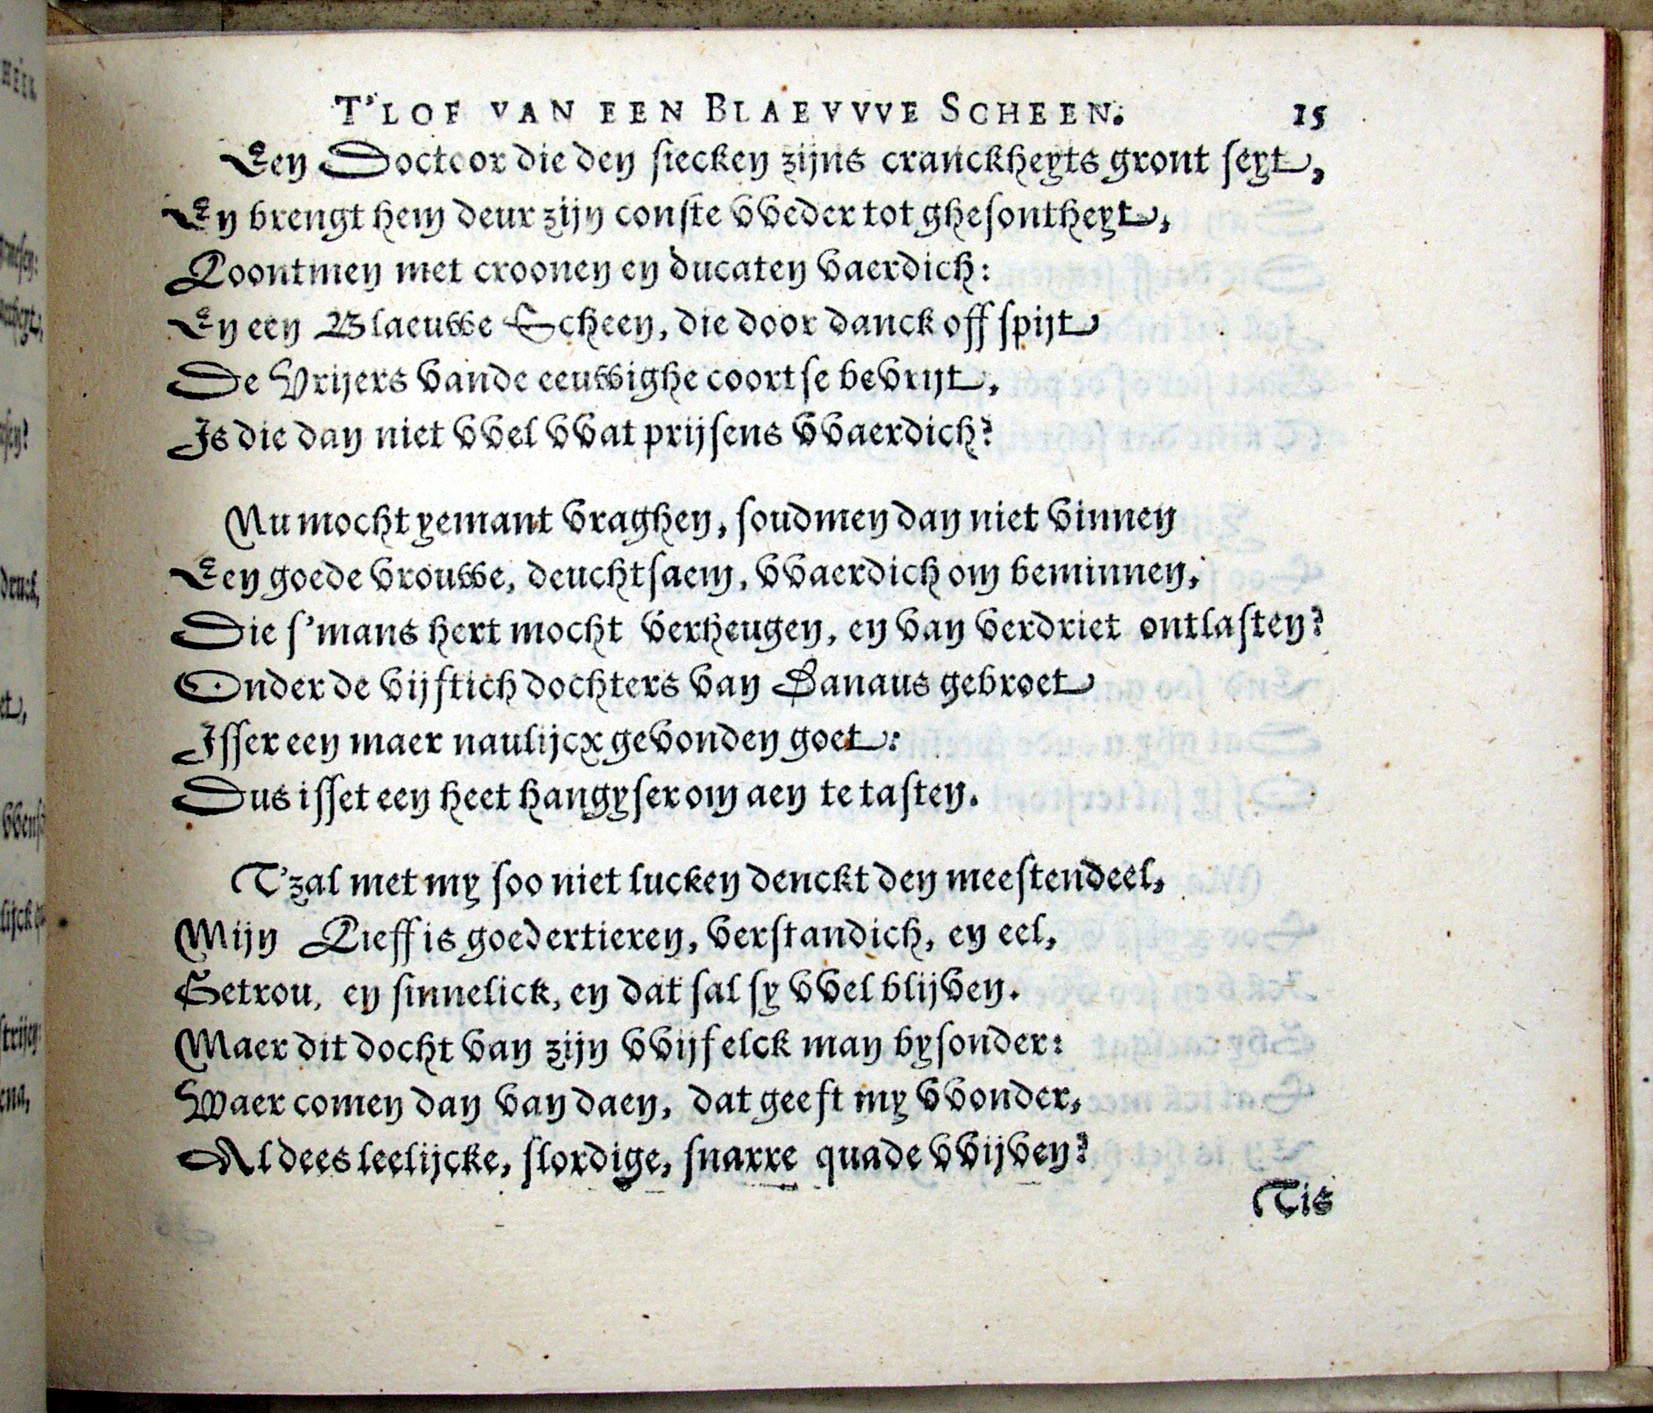 T'LOF VAN EEN BLAEVVVE SCHEEN. 15
Een Doctoor die den siecken zijns cranckheyts gront seyt,
En brengt hem deur zijn conste vveder tot ghesontheyt,
Loontmen met croonen en ducaten vaerdich:
En een Blaeuwe Scheen, die door danck off spijt
De Vrijers vande eeuwighe coortse bevrijt,
Is die dan niet vvel vvat prijsens vvaerdich?
Nu mocht yemant vraghen, soudmen dan niet vinnen
Een goede vrouwe, deuchtsaem, vvaerdich om beminnen,
Die s'mans hert mocht verheugen, en van verdriet ontlasten?
Onder de vijftich dochters van Danaus gebroet
Isser een maer naulijcx gevonden goet:
Dus isset een heet hangyser om aen te tasten.
T'zal met my soo niet lucken denckt den meestendeel,
Mijn Lieff is goedertieren, verstandich, en eel,
Getrou, en sinnelick, en dat sal sy vvel blijven.
Maer dit docht van zijn vvijf elck man bysonder:
Waer comen dan van daen, dat geeft my vvonder,
Al dees leelijcke, slordige, snarre quade vvijven?
Tis